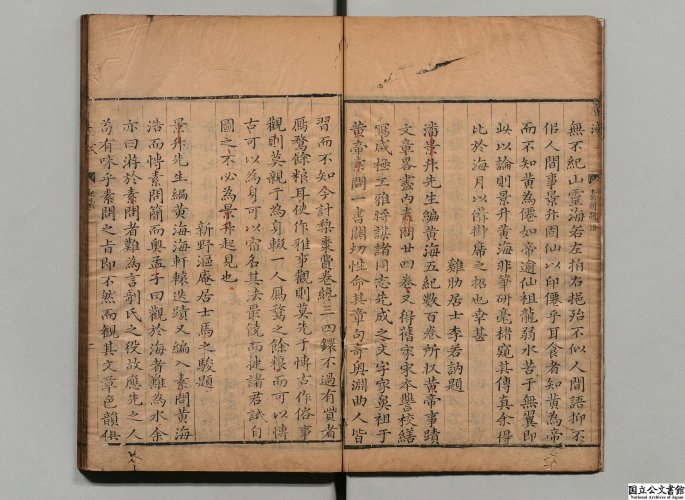 無不紀山靈海若左拍右挹殆不似人間語抑不
佀人間事景升固仙以印僊乎耳食者知黃為帝
而不知黃為僊如帝逾仙祖龍弱水苦于無翼即
以論則景升黃海非筆研毫楮窺其傳真余得
比於海月以備掛席之拾也幸甚
雞肋居士李若訥題
潘景升先生編黃海五紀數百卷所收黃帝事蹟
文章畧盡內素問廿四卷又得舊家宋本讐校繕
寫咸極工雅將謀諸同志先成之文字家鼻祖于
黃帝素問一書關切性命其章句奇奧淵曲人皆
習而不知今計梨棗費卷緣三四鐶不過有貲者
鴈鶩餘粮耳使作雅事觀則莫先于博古作俗事
觀則莫親于為身輟一人鴈鶩之餘糧而可以博
古可以為身可以宿名其法最儉而捷諸君試自
圖之不必為景升起見也
新野漚庵居士馬之駿題
景升先生編黃海海軒轅迭蹟又編入素問黃海
浩而博素問簡而奧孟子曰觀於海者難為水余
亦曰游於素問者難為言劉氏之役故應先之人
有味乎素問之旨即不然而觀其文章色韻俱
二
国立公文書館
National Archives of Japan